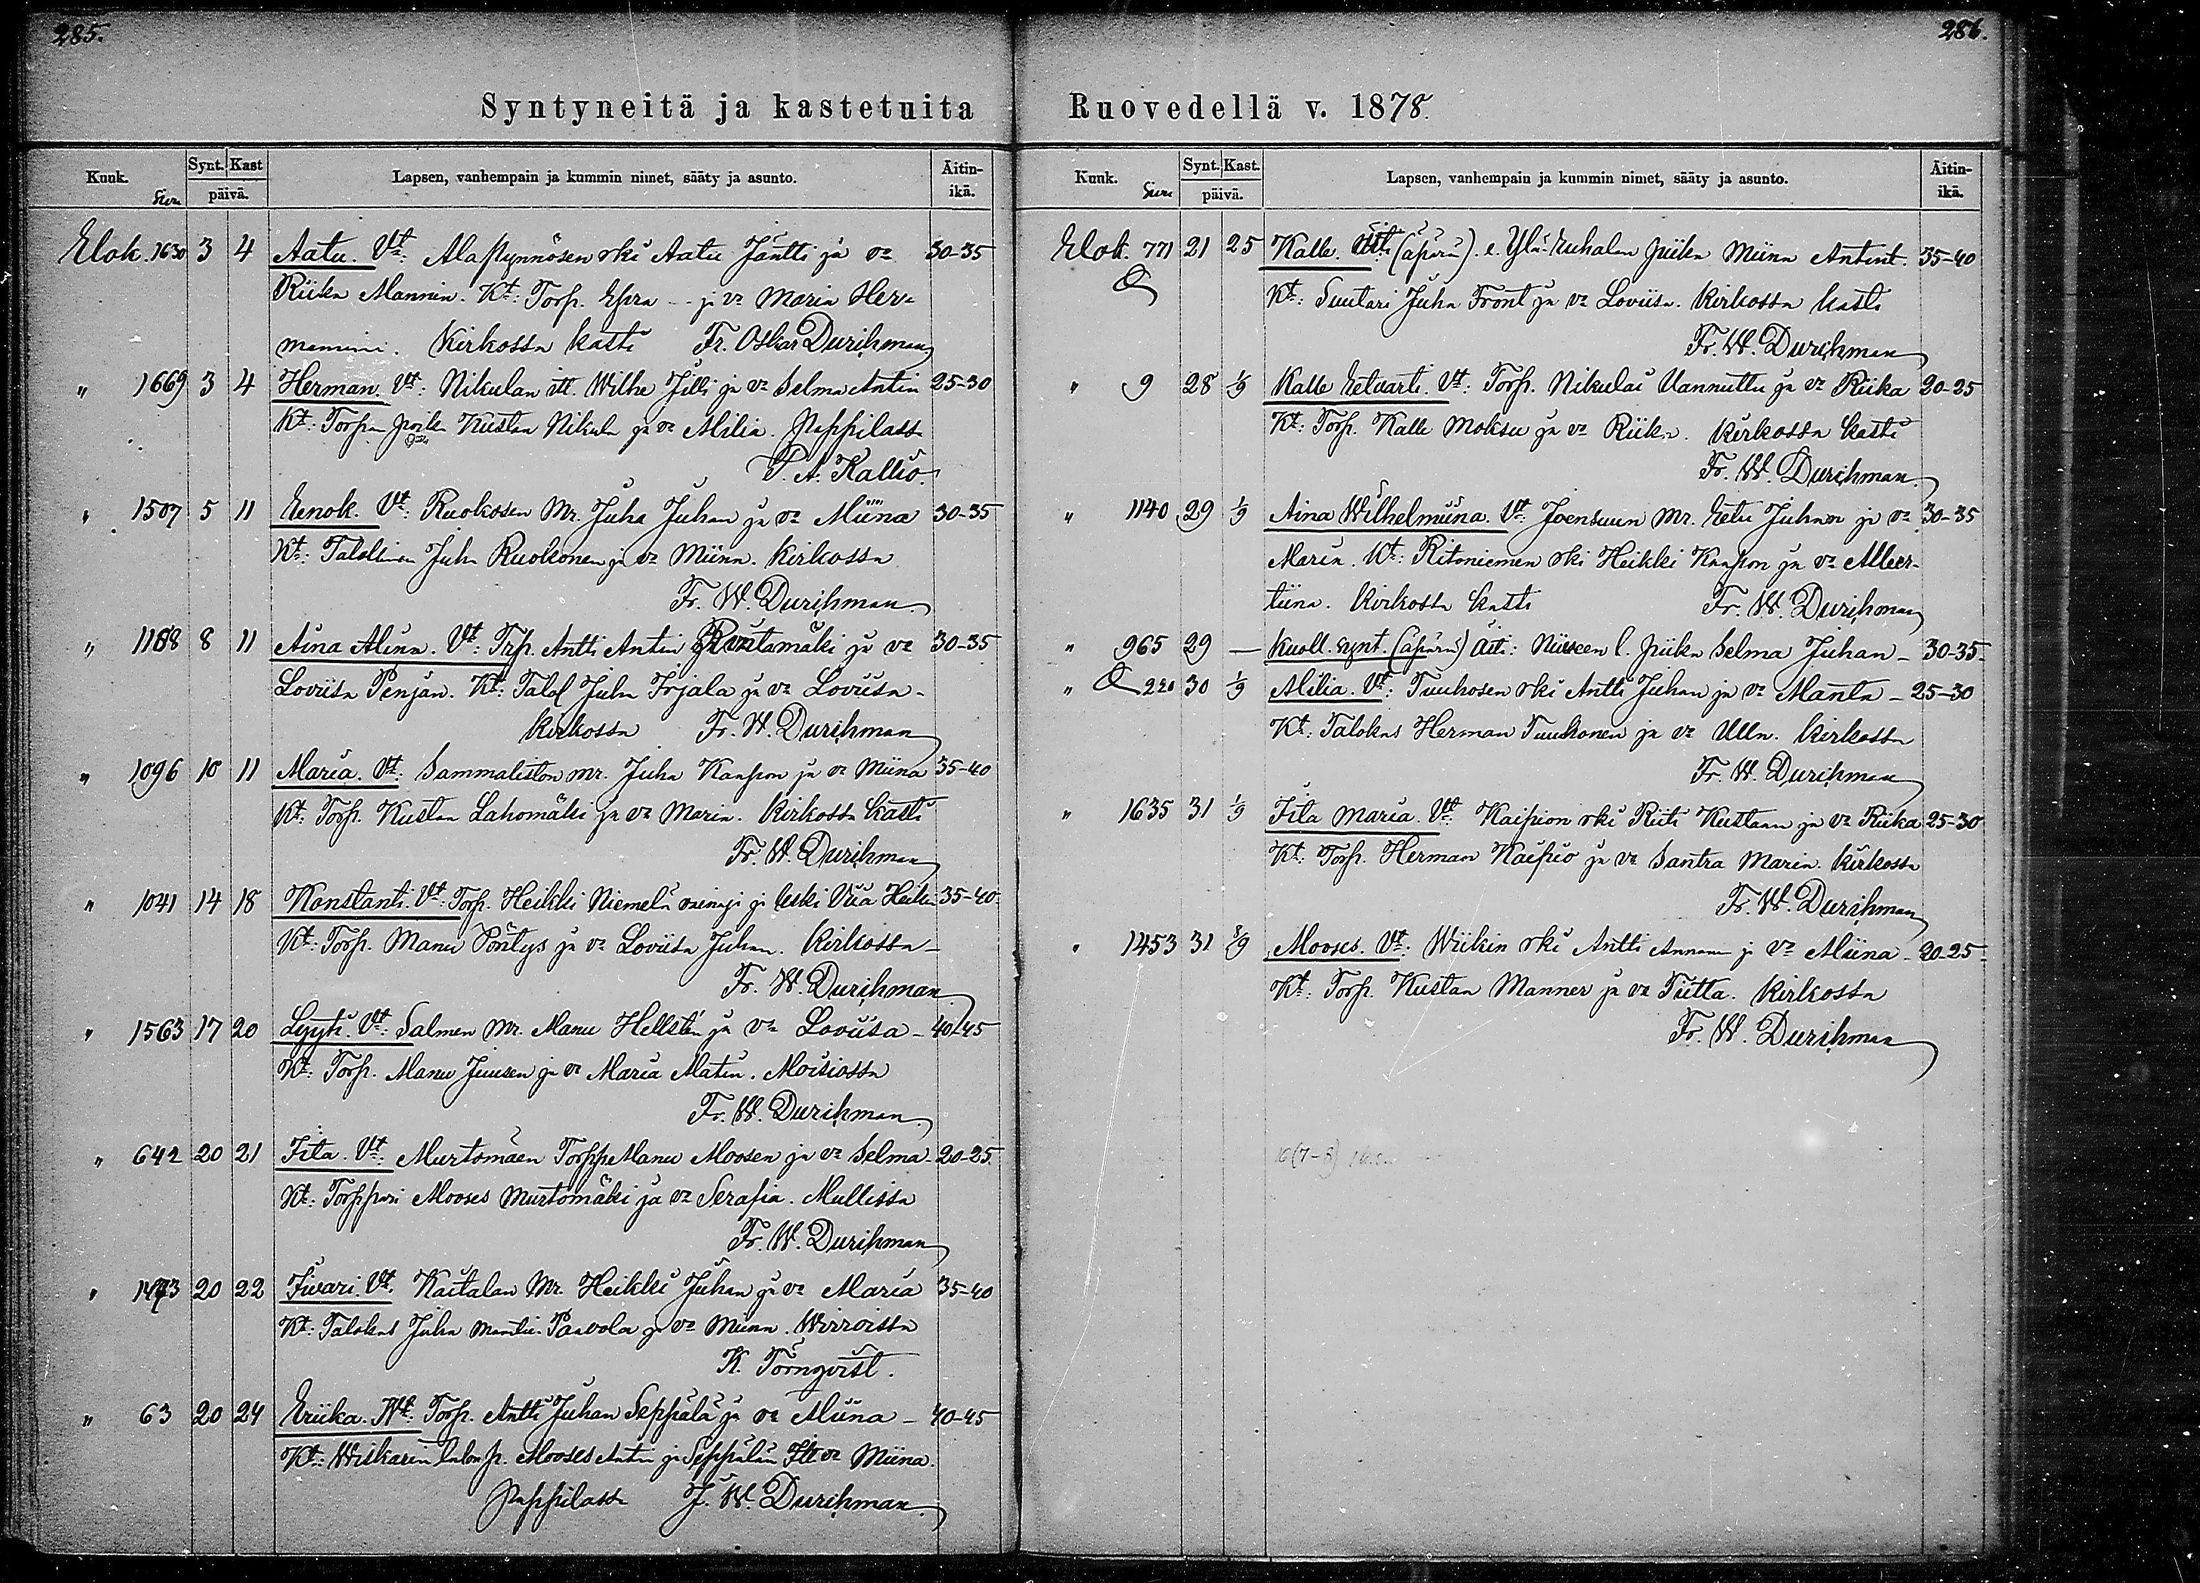 285.
Syntyneitä ja kastetuita
Kuuk. Sivu Synt. Kast päivä. Lapsen, vanhempain ja kummin nimet, sääty ja asunto. Äitin-ikä.
Elok. 1630 3 4 Aatu. Vt: Alapynnösen rki Aatu Jäntti ja vo 30-35
Riika Mannin. Kt: Torp. Epra - ja vo Maria Her-
mannin. Kirkossa kasti Fr. Oskar Durchman
" 1669 3 4 Herman. Vt: Nikulan itl. Wilhe Jilli ja vo Selma Antin 25-30
Kt: Torpan poika Kustaa Nikula ja vo Milia. Pappilassa
P. A. Kallio.
" 1507 5 11 Eenok. Vt: Ruokosen Mr. Juha Juhan ja vo Miina 30-35
Kt: Talollinen Juha Ruokonen ja vo Miina. Kirkossa
Fr. W. Durchman
" 1168 8 11 Aina Alina. Vt: Trp. Antti Antin Rautamäki ja vo 30-35
Loviisa Penjan. Kt: Talol Juha Irjala ja vo Loviisa-
Kirkossa Fr. W. Durchman
" 1096 10 11 Maria. Vt: Sammaliston mr. Juha Kaapon ja vo Miina 35-40
Kt: Torp. Kustaa Lahomäki ja vo Maria. Kirkossa kasti
Fr. W. Durchman
" 1041 14 18 Konstanti. Vt: Torp. Heikki Niemelä vainaja ja leski Viia Heikin 35-40
Kt: Torp. Manu Pöntys ja vo Loviisa Juhan. Kirkossa-
Fr. W. Durchman
" 1563 17 20 Lyyti. Vt: Salmen Mr. Manu Hellstén ja vo Loviisa - 40-45
Kt: Torp. Manu Juusen ja vo Maria Matin. Moisiossa
Fr. W. Durchman
" 642 20 21 Iita. Vt: Murtomäen Torpp Manu Moosen ja vo Selma - 20-25
Kt: Torppari Mooses Murtomäki ja vo Serafia. Mullissa
Fr. W. Durchman
" 1473 20 22 Iivari. Vt. Kaitalan Mr. Heikki Juhan ja vo Maria 35-40
Kt: Talokas Juha Mantii-Paavola ja vo Miina. Wirroissa
K. Törnqvist.
" 63 20 24 Eriika. Wt: Torp. Antti Juhan Seppälä ja vo Miina - 40-45
Kt: Wiskarin talon p. Mooses Antin ja Seppälän Itl vo Miina.
Pappilassa J. W. Durchman
286.
Ruovedellä v. 1878.
Kuuk. Sivu Synt. Kast. päivä. Lapsen, vanhempain ja kummin nimet, sääty ja asunto. Äitin-ikä.
Elok. 771 21 25 Kalle. Äiti (äpärä). e. Ylä-Euhalan piika Miina Antint. 35-40
Kt: Suutari Juha Front ja vo Loviisa. Kirkossa kasti
Fr. W. Durchman
" 9 28 1/9 Kalle Eetvarti. Vt: Torp. Nikulai Vannuttu ja vo Riika 20-25
Kt: Torp. Kalle Moksu ja vo Riika. Kirkossa kasti
Fr. W. Durchman
" 1140 29 1/9 Aina Wilhelmiina. Vt: Joensuun Mr. Eetu Juhan ja vo 30-35
Maria. Kt: Ritoniemen rki Heikki Kaapon ja vo Alleer-
tiina. Kirkossa kasti Fr. W. Durchman
" 965 29 — Kuoll. synt. (äpärä) Äiti: l. piika Selma Juhan - 30-35-
" 220 30 1/9 Milia. Vt: Tuuhosen rki Antti Juhan ja vo Manta - 25-30
Kt: Talokas Herman Tuuhonen ja vo Ulla. Kirkossa
Fr. W. Durchman
" 1635 31 1/9 Iita Maria. Vt: Kaipion rki Riiti Kustaan ja vo Riika 25-30
Kt: Torp. Herman Kaipio ja vo Santra Maria. Kirkossa
Fr. W. Durchman
" 1453 31 8/9 Mooses. Vt: Wiikin rki Antti Annan ja vo Miina - 20-25-
Kt: Torp. Kustaa Manner ja vo Tiitta. Kirkossa
Fr. W. Durchman